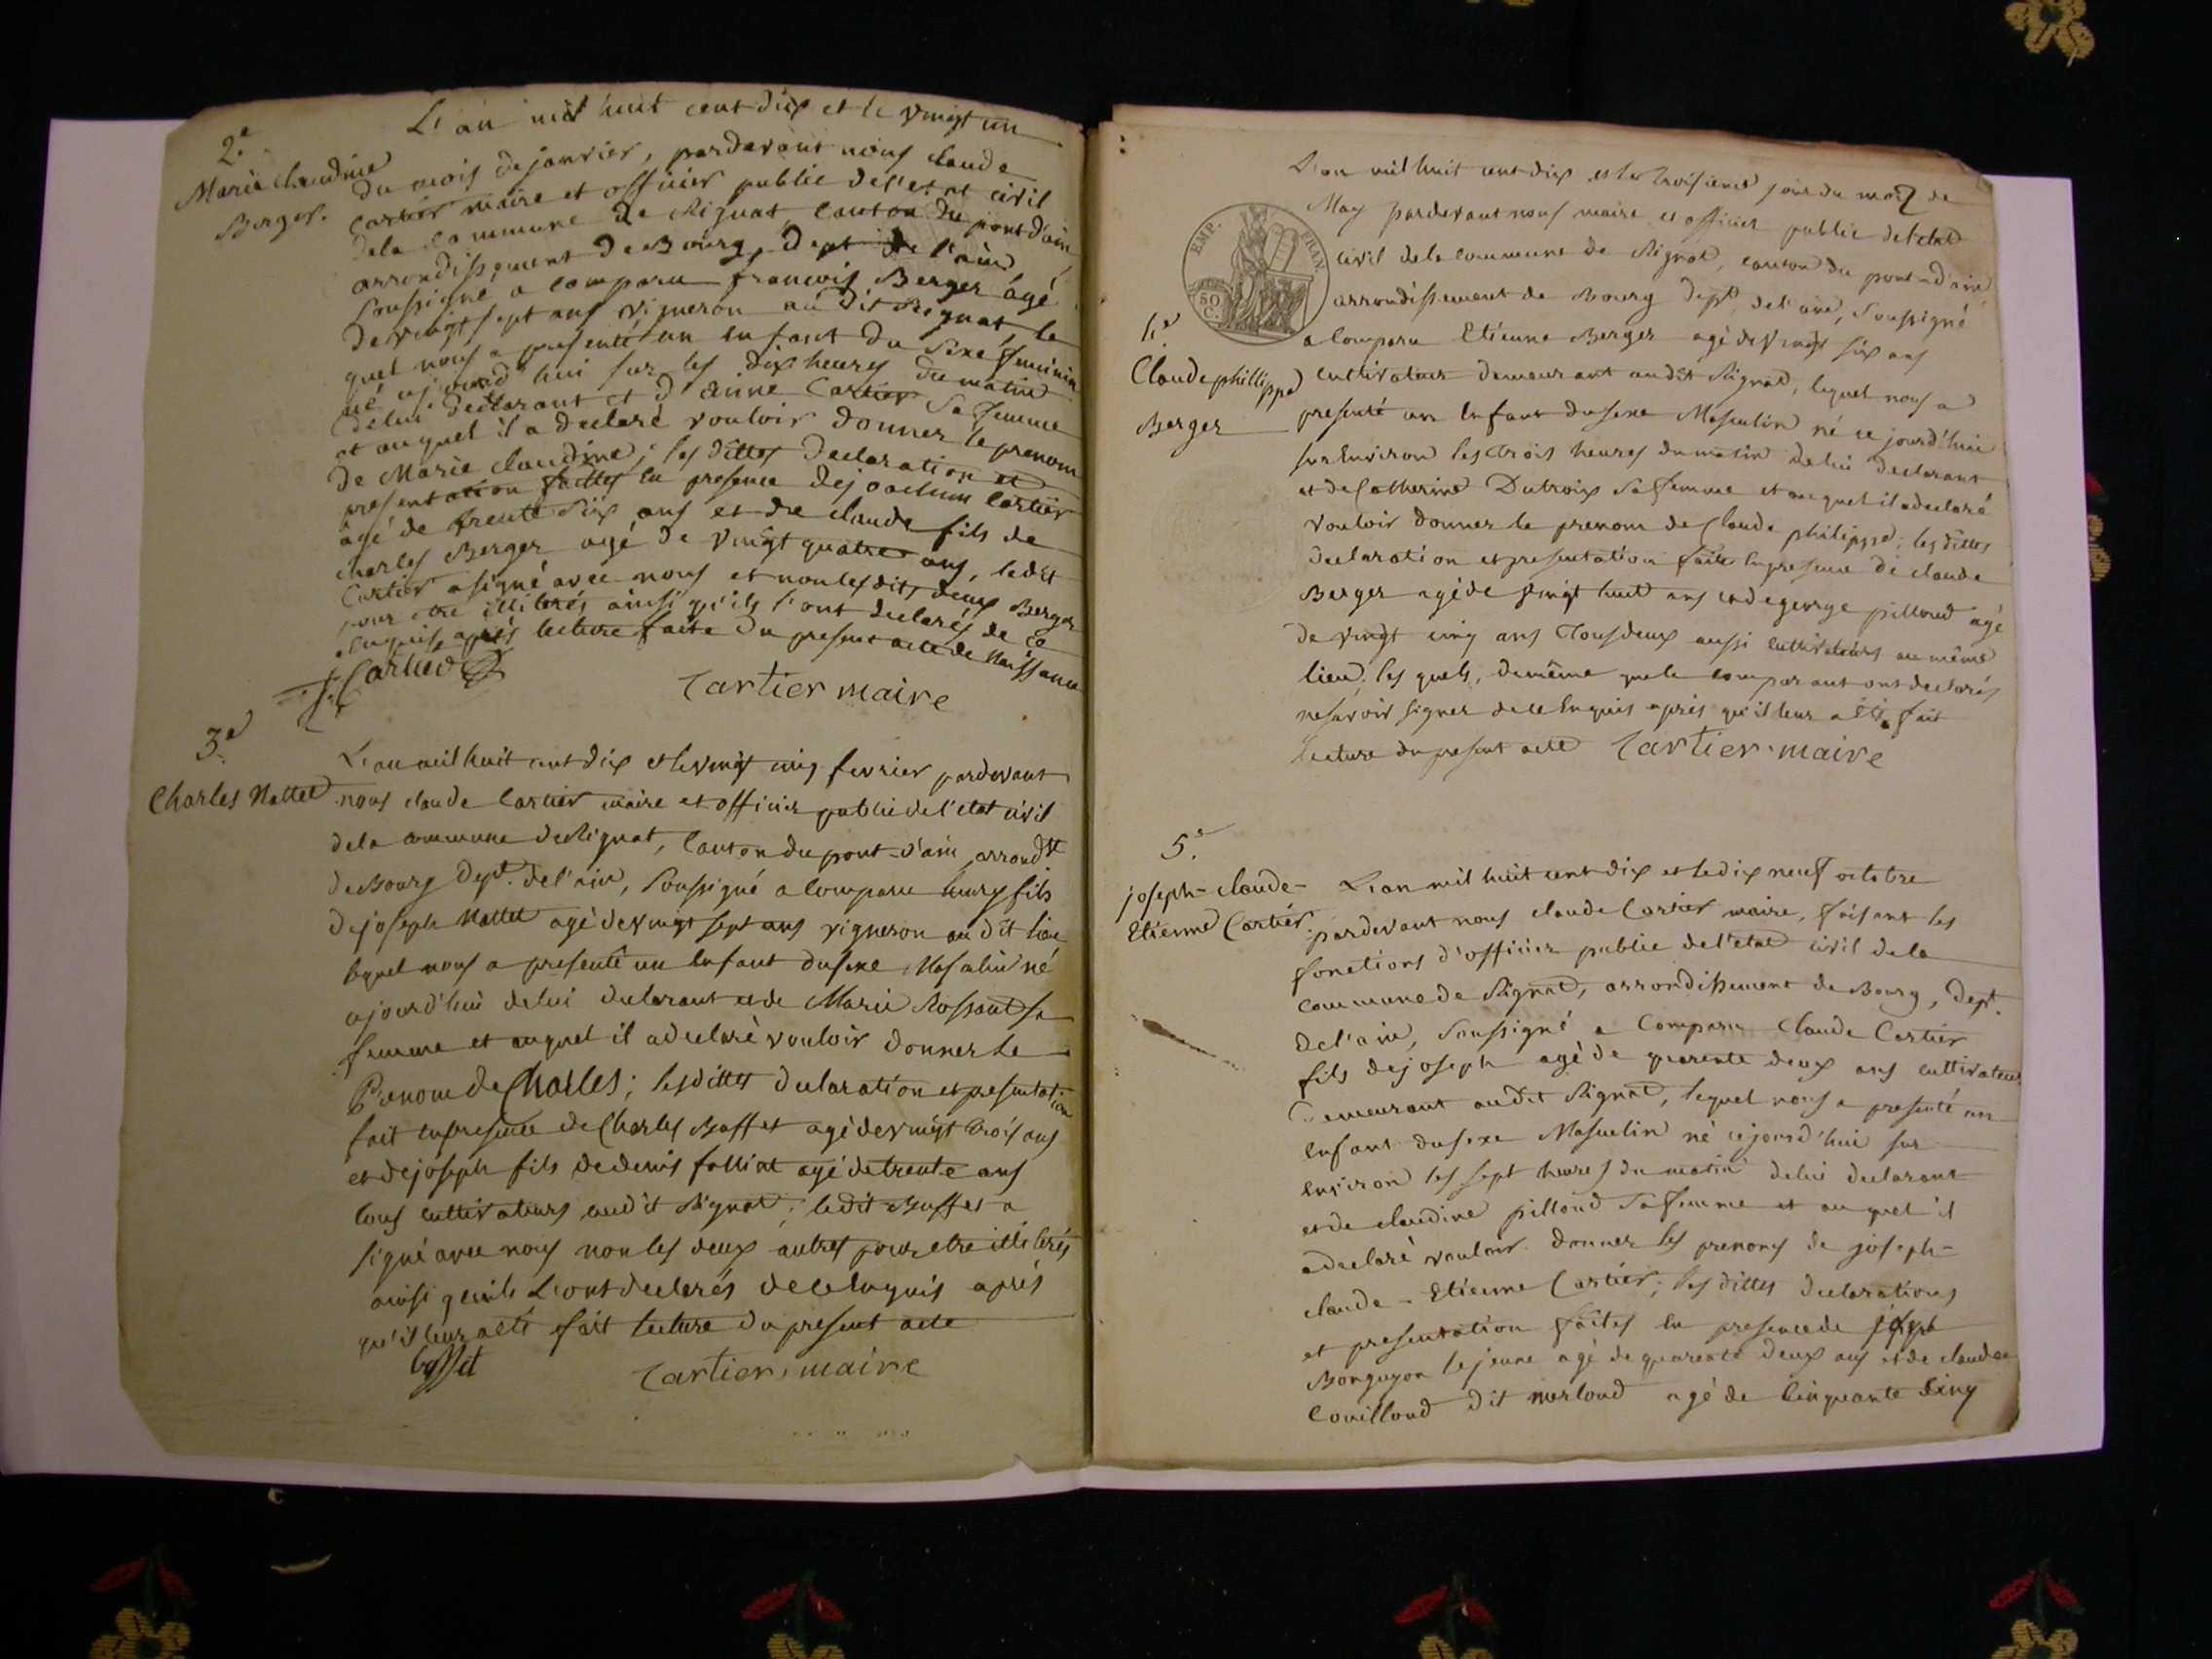 2.e
Marie Claudine
Berger.
L'an mil huit cent dix et le vingt un
du mois de janvier, pardevant nous claude
Cartier maire et officier public de l'etat civil
dela commune de Rignat, canton du pont d'ain,
arrondissement de Bourg, dept de l'ain,
soussigné a comparu francois Berger âgé
de vingt sept ans vigneron au dit Rignat, le
quel nous a presenté un enfant du sexe feminin
né ajourd'hui sur les dix heures du matin
delui declarant et d'anne Cartier sa femme
et auquel il a declaré vouloir donner le prenom
de Marie claudine; les dittes declaration et
presentation faittes en presence de joachim Cartier
âgé de trente six ans et de claude fils de
charles Berger agé de vingt quatre ans, ledit
Cartier a signé avec nous et non lesdits deux Berger
pour etre illiterés ainsi qu'ils l'ont declarés de ce
enquis, après lecture faite du present acte de naissance
J Cartier
Cartier maire
3.e
Charles Nallet
L'an mil huit cent dix et le vingt cinq fevrier pardevant
nous claude Cartier maire et officier public de l'etat civil
dela commune de Rignat, canton du pont-d'ain, arrondst
de Bourg dept. de l'ain, soussigné a comparu fils
de joseph Nallet agé de vingt sept ans vigneron au dit lieu
lequel nous a presenté un enfant du sexe Masculin né
ajourd'hui delui declarant et de Marie Rossand sa
femme et auquel il a declaré vouloir donner le
Prenom de Charles; les dittes declaration et presentation
fait en presence de Charles Buffet agé de vingt trois ans
et de joseph fils de denis folliat agé de trente ans
tous cultivateurs audit Rignat; ledit Buffet a
signé avec nous non les deux autres pour etre illiterés
ainsi qu'ils l'ont declarés de ce enquis après
qu'il leur a eté fait lecture du present acte
Cartier, maire
EMP. FRAN.
50
C.
4.e
Claude phillippe
Berger
L'an mil huit cent dix et le troisieme jour du mois de
May pardevant nous maire et officier public de l'etat
civil dela commune de Rignat, canton du pont-d'ain,
arrondissement de Bourg dept. de l'ain, soussigné
a comparu Etienne Berger agé de vingt six ans
cultivateur demeurant audit Rignat, lequel nous a
presenté un enfant du sexe Masculin né ce jourd'hui
sur environ les trois heures du matin delui declarant
et de Catherine Dutroix sa femme et auquel il a declaré
vouloir donner le prenom de Claude philippe; les dittes
declaration et presentation faite en presence de claude
Berger agé de vingt huit ans et de george pilloud agé
de vingt cinq ans tous deux aussi cultivateurs au même
lieu, les quels, demême que le comparant ont declarés
ne savoir signer de ce enquis après qu'il leur a été fait
lecture du present acte Cartier maire
5.e
joseph-claude-
Etienne Cartier.
L'an mil huit cent dix et le dix neuf octobre
pardevant nous claude Cartier maire, faisant les
fonctions d'officier public de l'etat civil dela
commune de Rignat, arrondissement de Bourg, dept.
de l'ain, soussigné a comparu claude Cartier
fils de joseph agé de quarente deux ans cultivateur
demeurant audit Rignat, lequel nous a presenté un
enfant du sexe Masculin né cejourd'hui sur
environ les sept heures du matin delui declarant
et de claudine pilloud sa femme et auquel il
a declaré vouloir donner les prenoms de joseph-
claude-Etienne Cartier; les dittes declarations
et presentation faites en presence de joseph
Bonguyon le jeune agé de quarente deux ans et de claude
Couilloud dit merloud agé de cinquante cinq